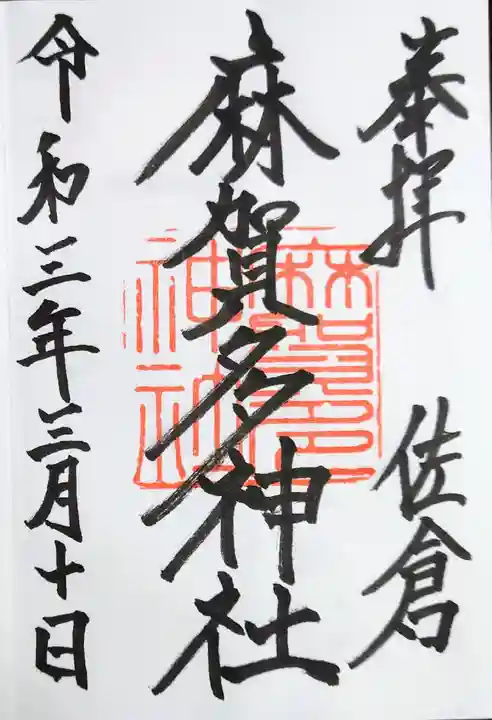 奉拝 佐倉
麻賀多神社
令和三年三月十日
麻賀多
神社